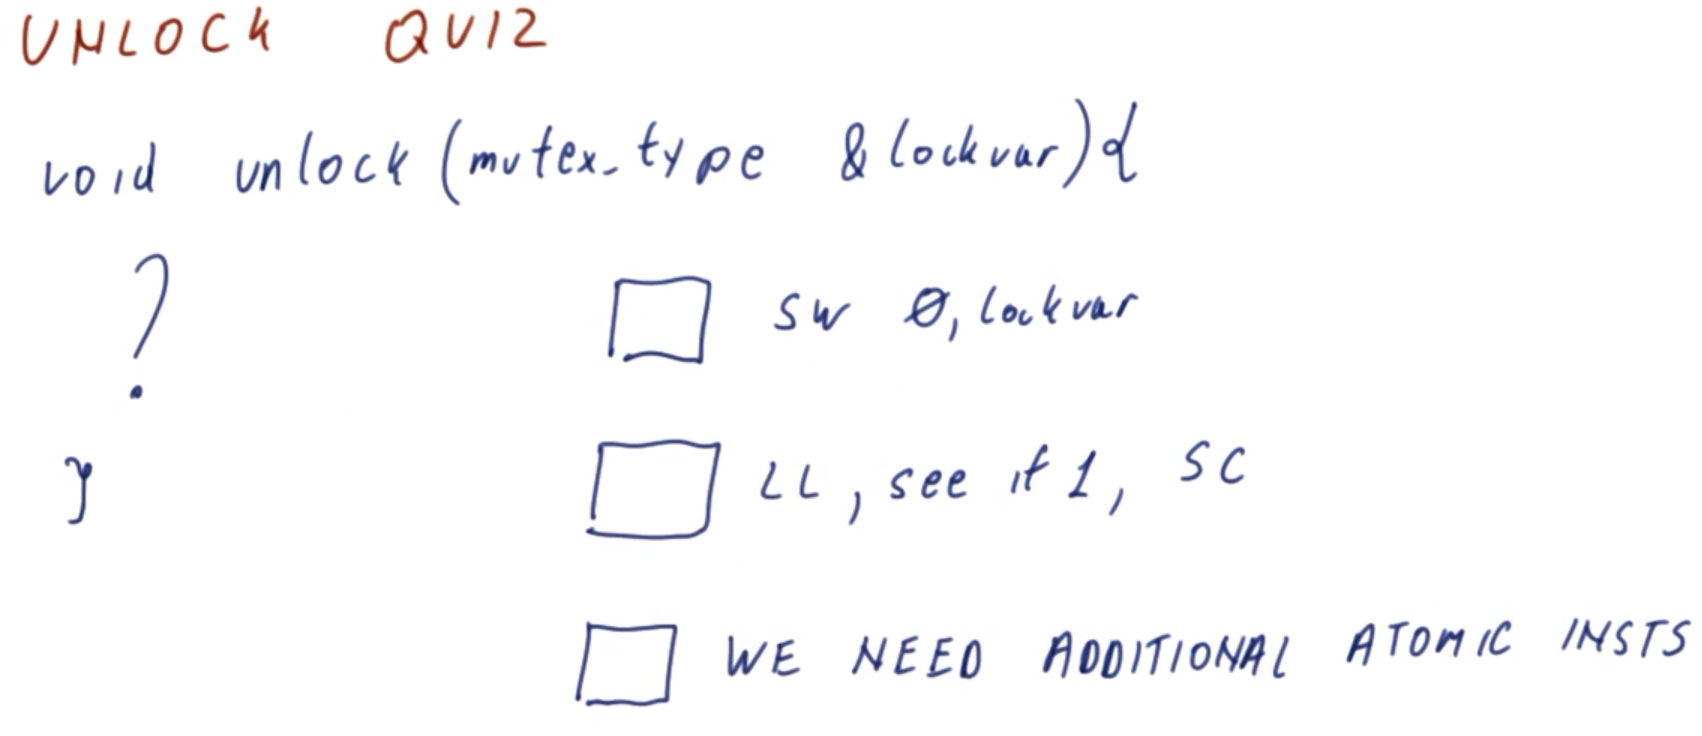 UNLOCK QUIZ
void unlock (mutex_type &lockvar){
?
SW 0, lockvar
LL, see if 1, SC
}
WE NEED ADDITIONAL ATOMIC INSTS